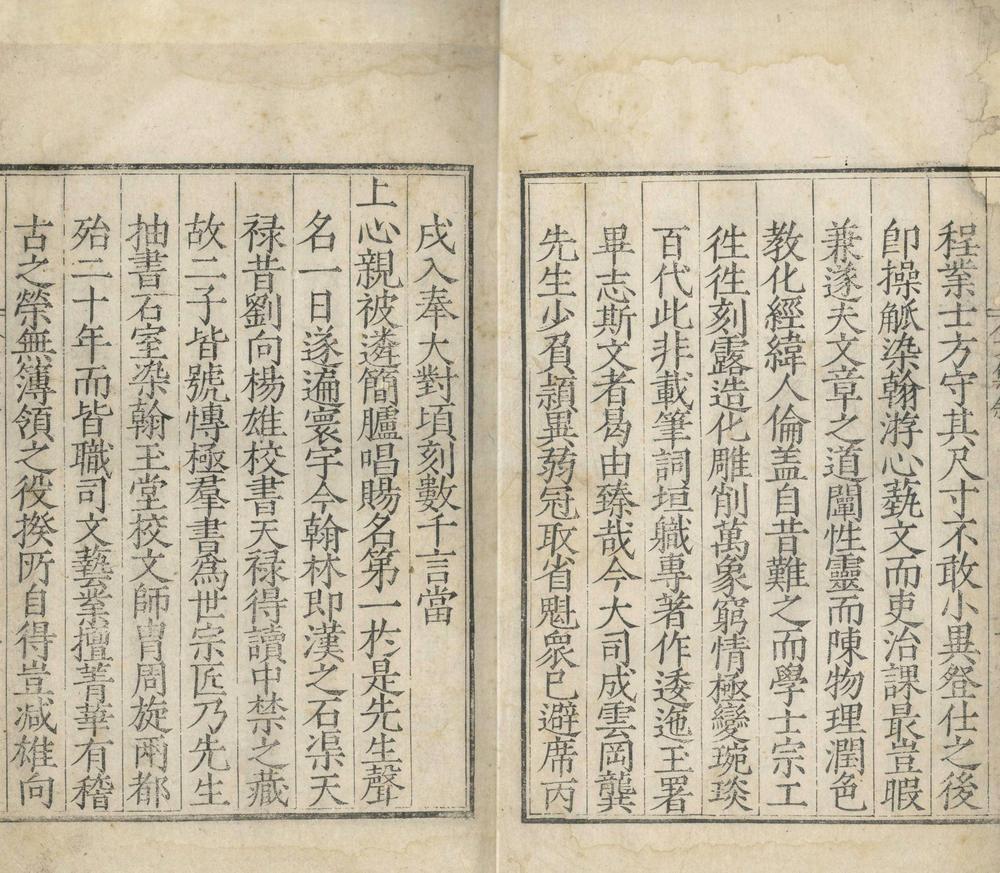 程業士方守其尺寸不敢小異登仕之後
卽操觚染翰游心藝文而吏治課最豈暇
兼遂夫文章之道闡性靈而陳物理潤色
教化經緯人倫盖自昔難之而學士宗工
徃徃刻露造化雕削萬象窮情極變琬琰
百代此非載筆詞垣職專著作逶迤玉署
畢志斯文者曷由臻哉今大司成雲岡龔
先生少負頴異弱冠取省魁衆已避席丙
戌入奉大對頃刻數千言當
上心親被遴簡臚唱賜名第一於是先生聲
名一日遂遍寰宇今翰林即漢之石渠天
禄昔劉向楊雄校書天禄得讀中禁之藏
故二子皆號慱極羣書爲世宗匠乃先生
抽書石室染翰玉堂校文師胄周旋兩都
殆二十年而皆職司文藝業擅菁華有稽
古之榮無簿領之役揆所自得豈减雄向